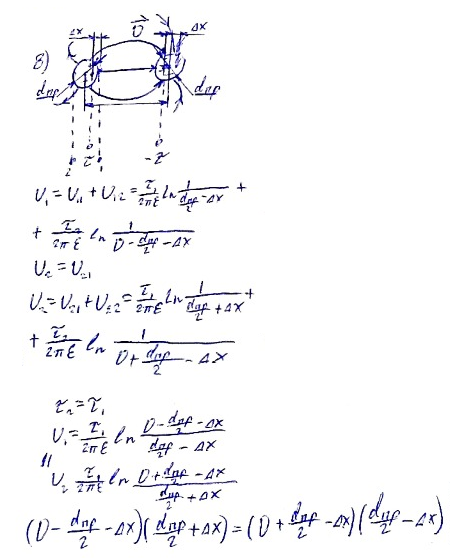 Δx D⃗ Δx
в)
dпр dпр
τ -τ
U₁ = U₁₁ + U₁₂ = τ₁/2πε ln 1/(dпр/2 - Δx) +
+ τ₂/2πε ln 1/(D - dпр/2 - Δx)
U₂ = U₂₁
U₂ = U₂₁ + U₂₂ = τ₁/2πε ln 1/(dпр/2 + Δx) +
+ τ₂/2πε ln 1/(D + dпр/2 - Δx)
τ₂ = τ₁
U₁ = τ₁/2πε ln (D - dпр/2 - Δx)/(dпр/2 - Δx)
"
U₂ τ₁/2πε ln (D + dпр/2 - Δx)/(dпр/2 + Δx)
(D - dпр/2 - Δx)(dпр/2 + Δx) = (D + dпр/2 - Δx)(dпр/2 - Δx)